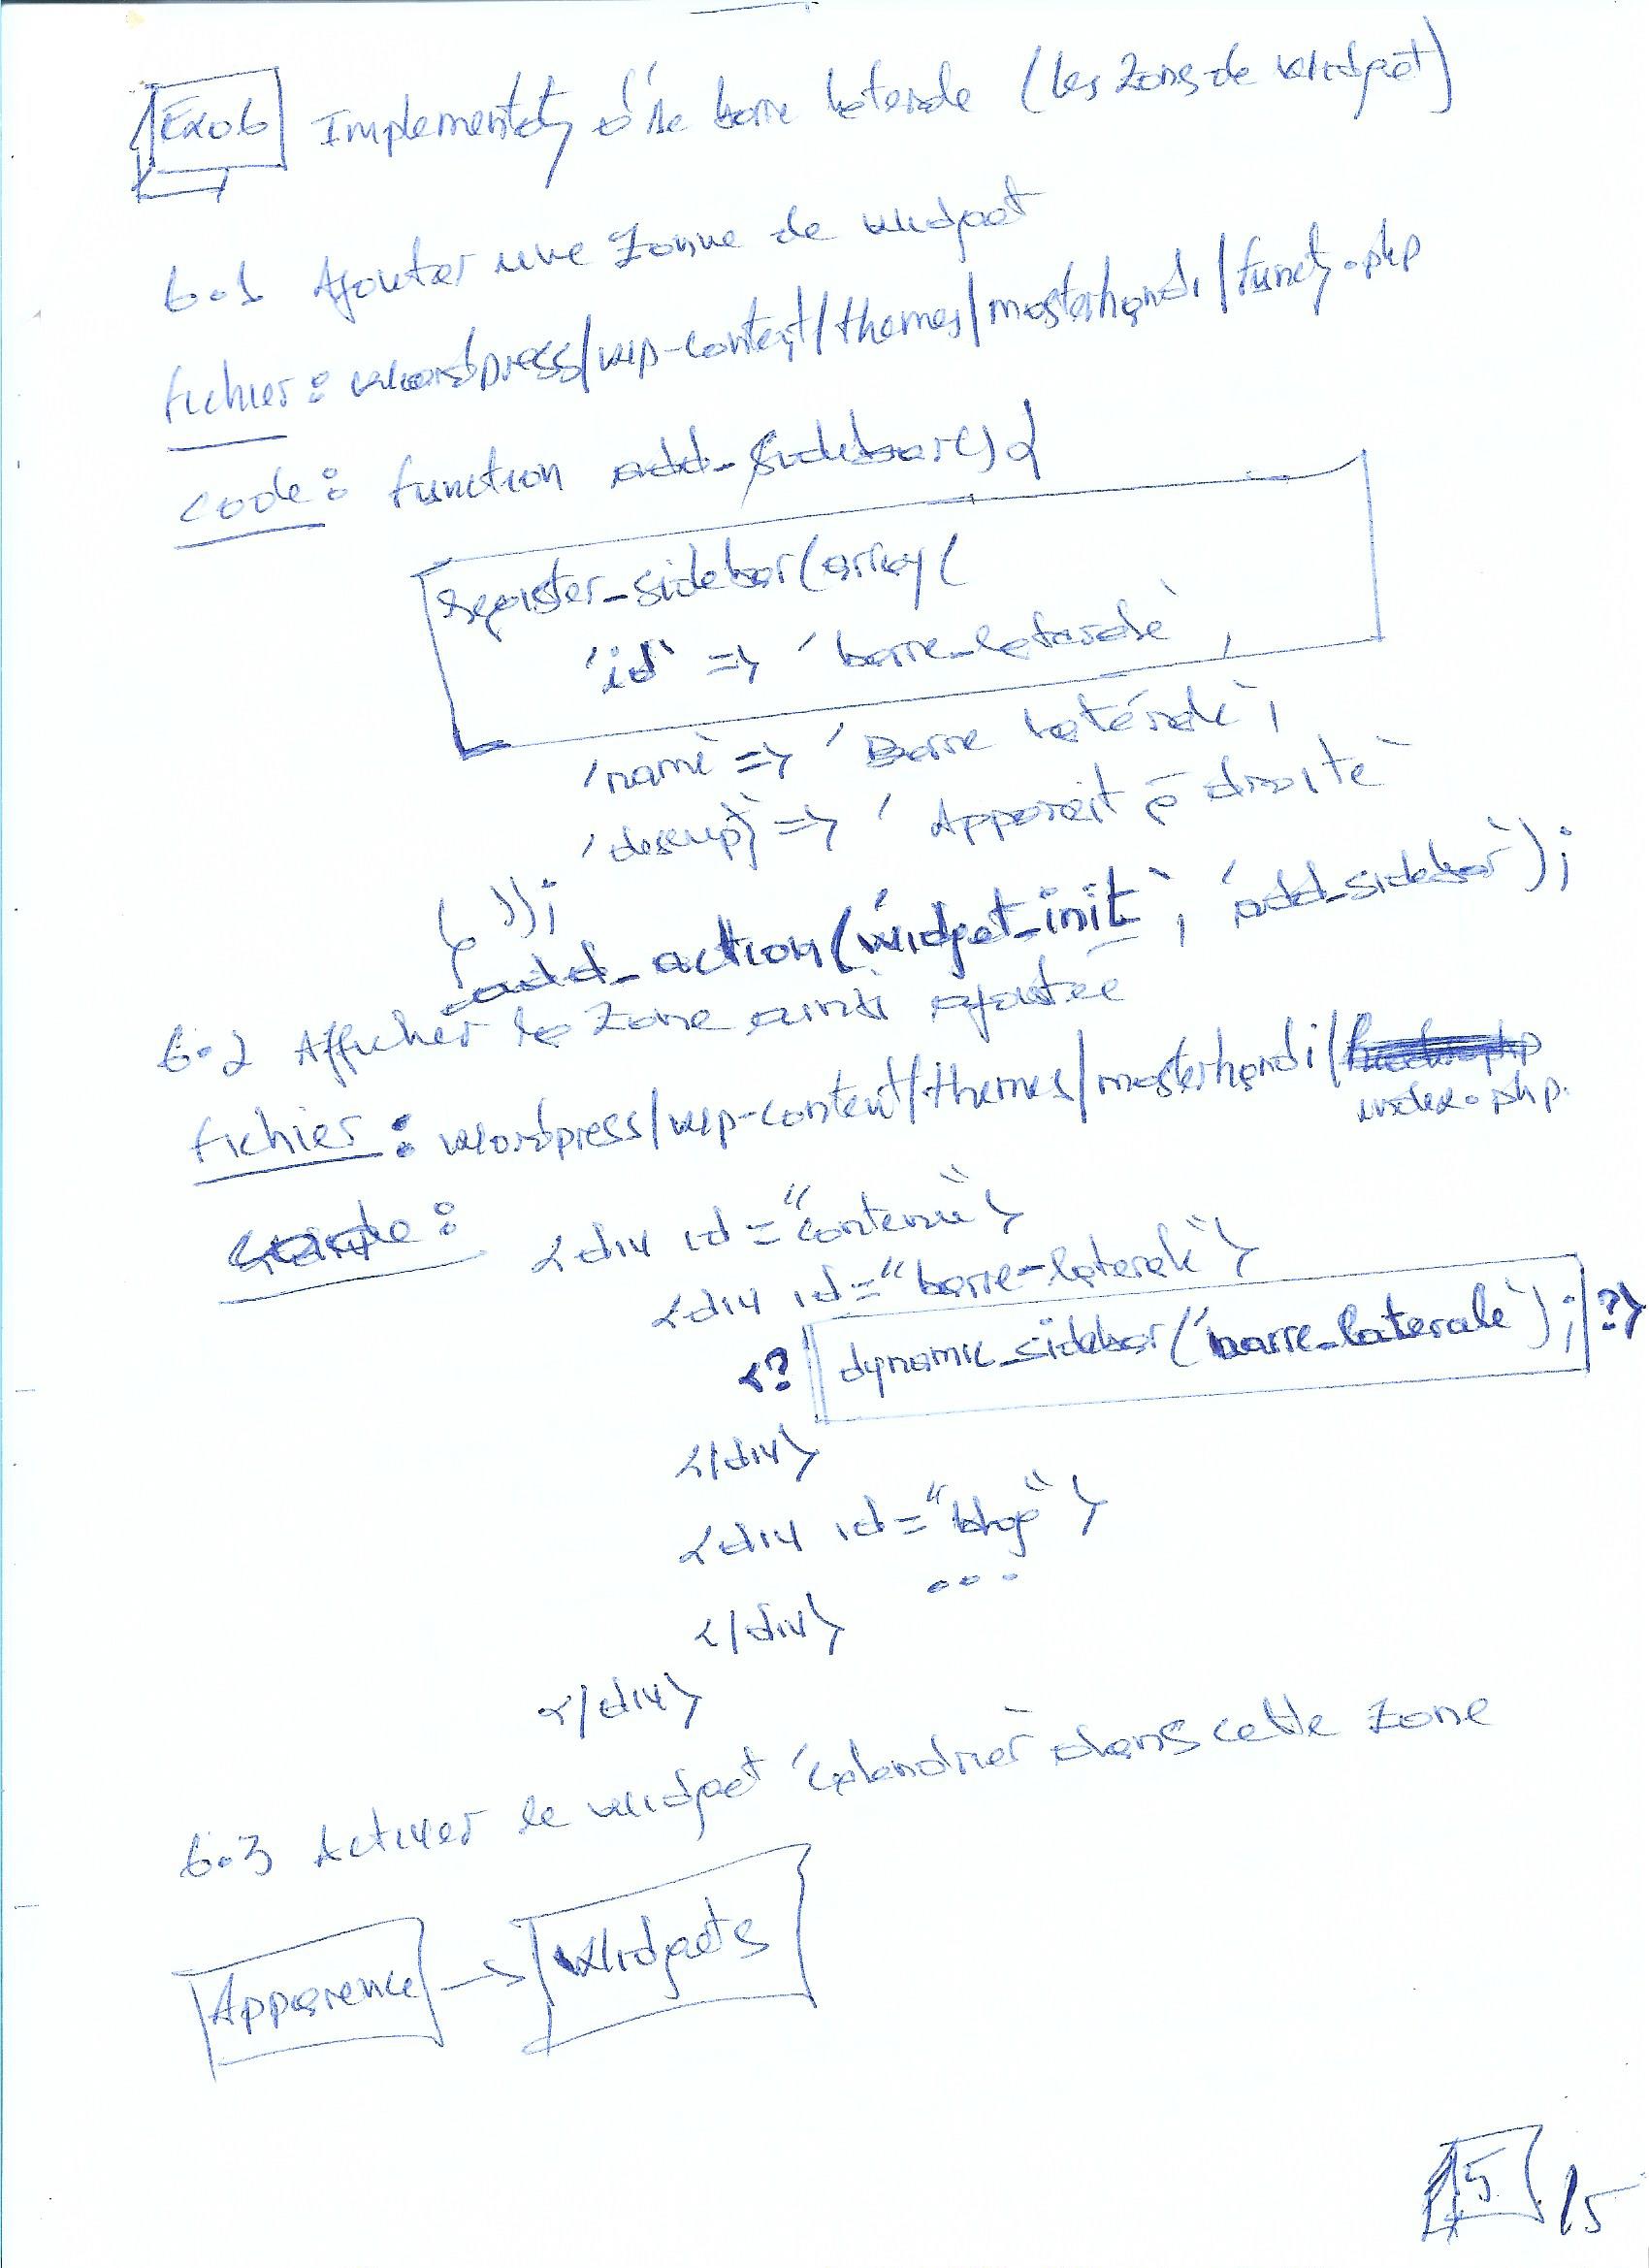 Exo6 Implementat° d'1e barre laterale (les zones de widget)
6.1 Ajouter une zonne de widget
fichier : wordpress/wp-content/themes/masterhandi/funct°.php
code : function add_sidebar() {
register_sidebar(array(
'id' => 'barre_laterale',
'name' => 'Barre latérale',
'descript°' => 'Apparait à droite'
));
}
add_action('widget_init', 'add_sidebar');
6.2 Afficher la zone ainsi ajoutée
fichier : wordpress/wp-content/themes/masterhandi/
index.php
code : <div id="contenu">
<div id="barre-laterale">
<? dynamic_sidebar('barre_laterale'); ?>
</div>
<div id="blog">
...
</div>
</div>
6.3 Activer le widget 'calendrier' dans cette zone
Apparence -> Widgets
15 /15